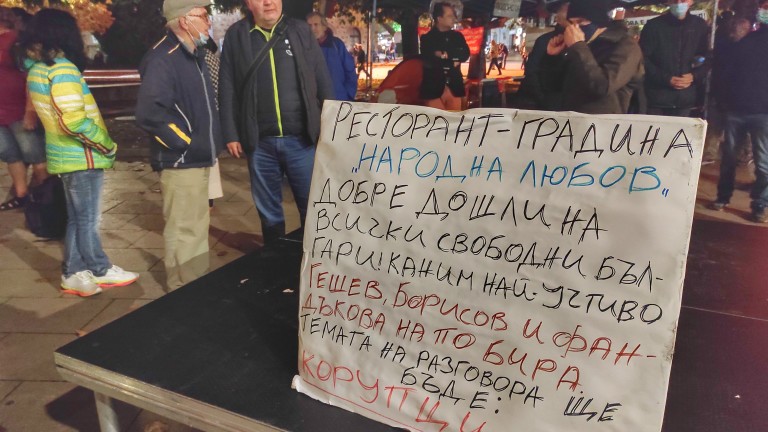 РЕСТОРАНТ-ГРАДИНА
„НАРОДНА ЛЮБОВ"
ДОБРЕ ДОШЛИ НА
ВСИЧКИ СВОБОДНИ БЪЛ-
ГАРИ! КАНИМ НАЙ-УЧТИВО
ГЕШЕВ, БОРИСОВ И ФАН-
ДЪКОВА НА ПО БИРА.
ТЕМАТА НА РАЗГОВОРА ЩЕ
БЪДЕ: